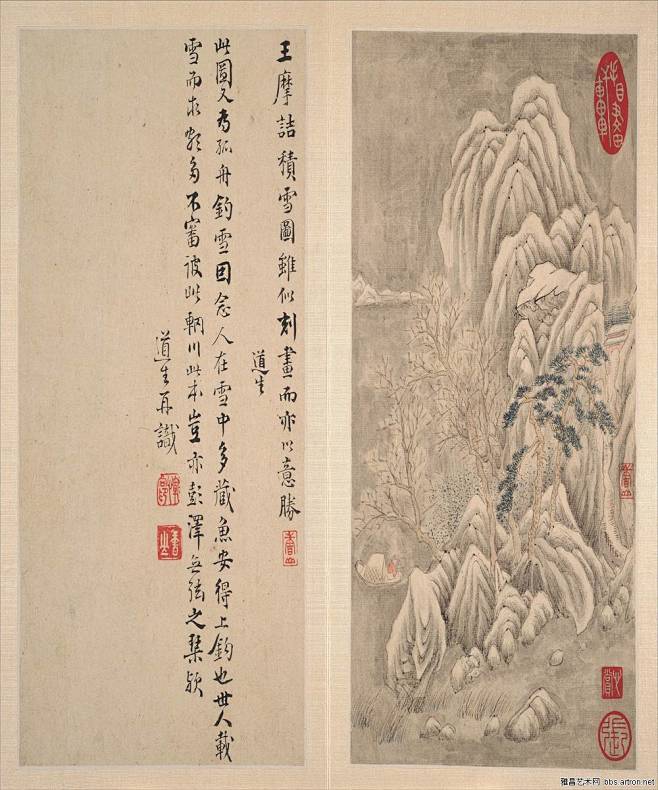 王摩詰積雪圖雖似刻畫而亦以意勝
道生
此圖又為孤舟釣雪因念人在雪中多藏魚安得上鈎也世人載
雪而求鮮多不審彼此輞川此本豈亦彭澤無弦之琴歟
道生再識
雅昌艺术网 bbs.artron.net